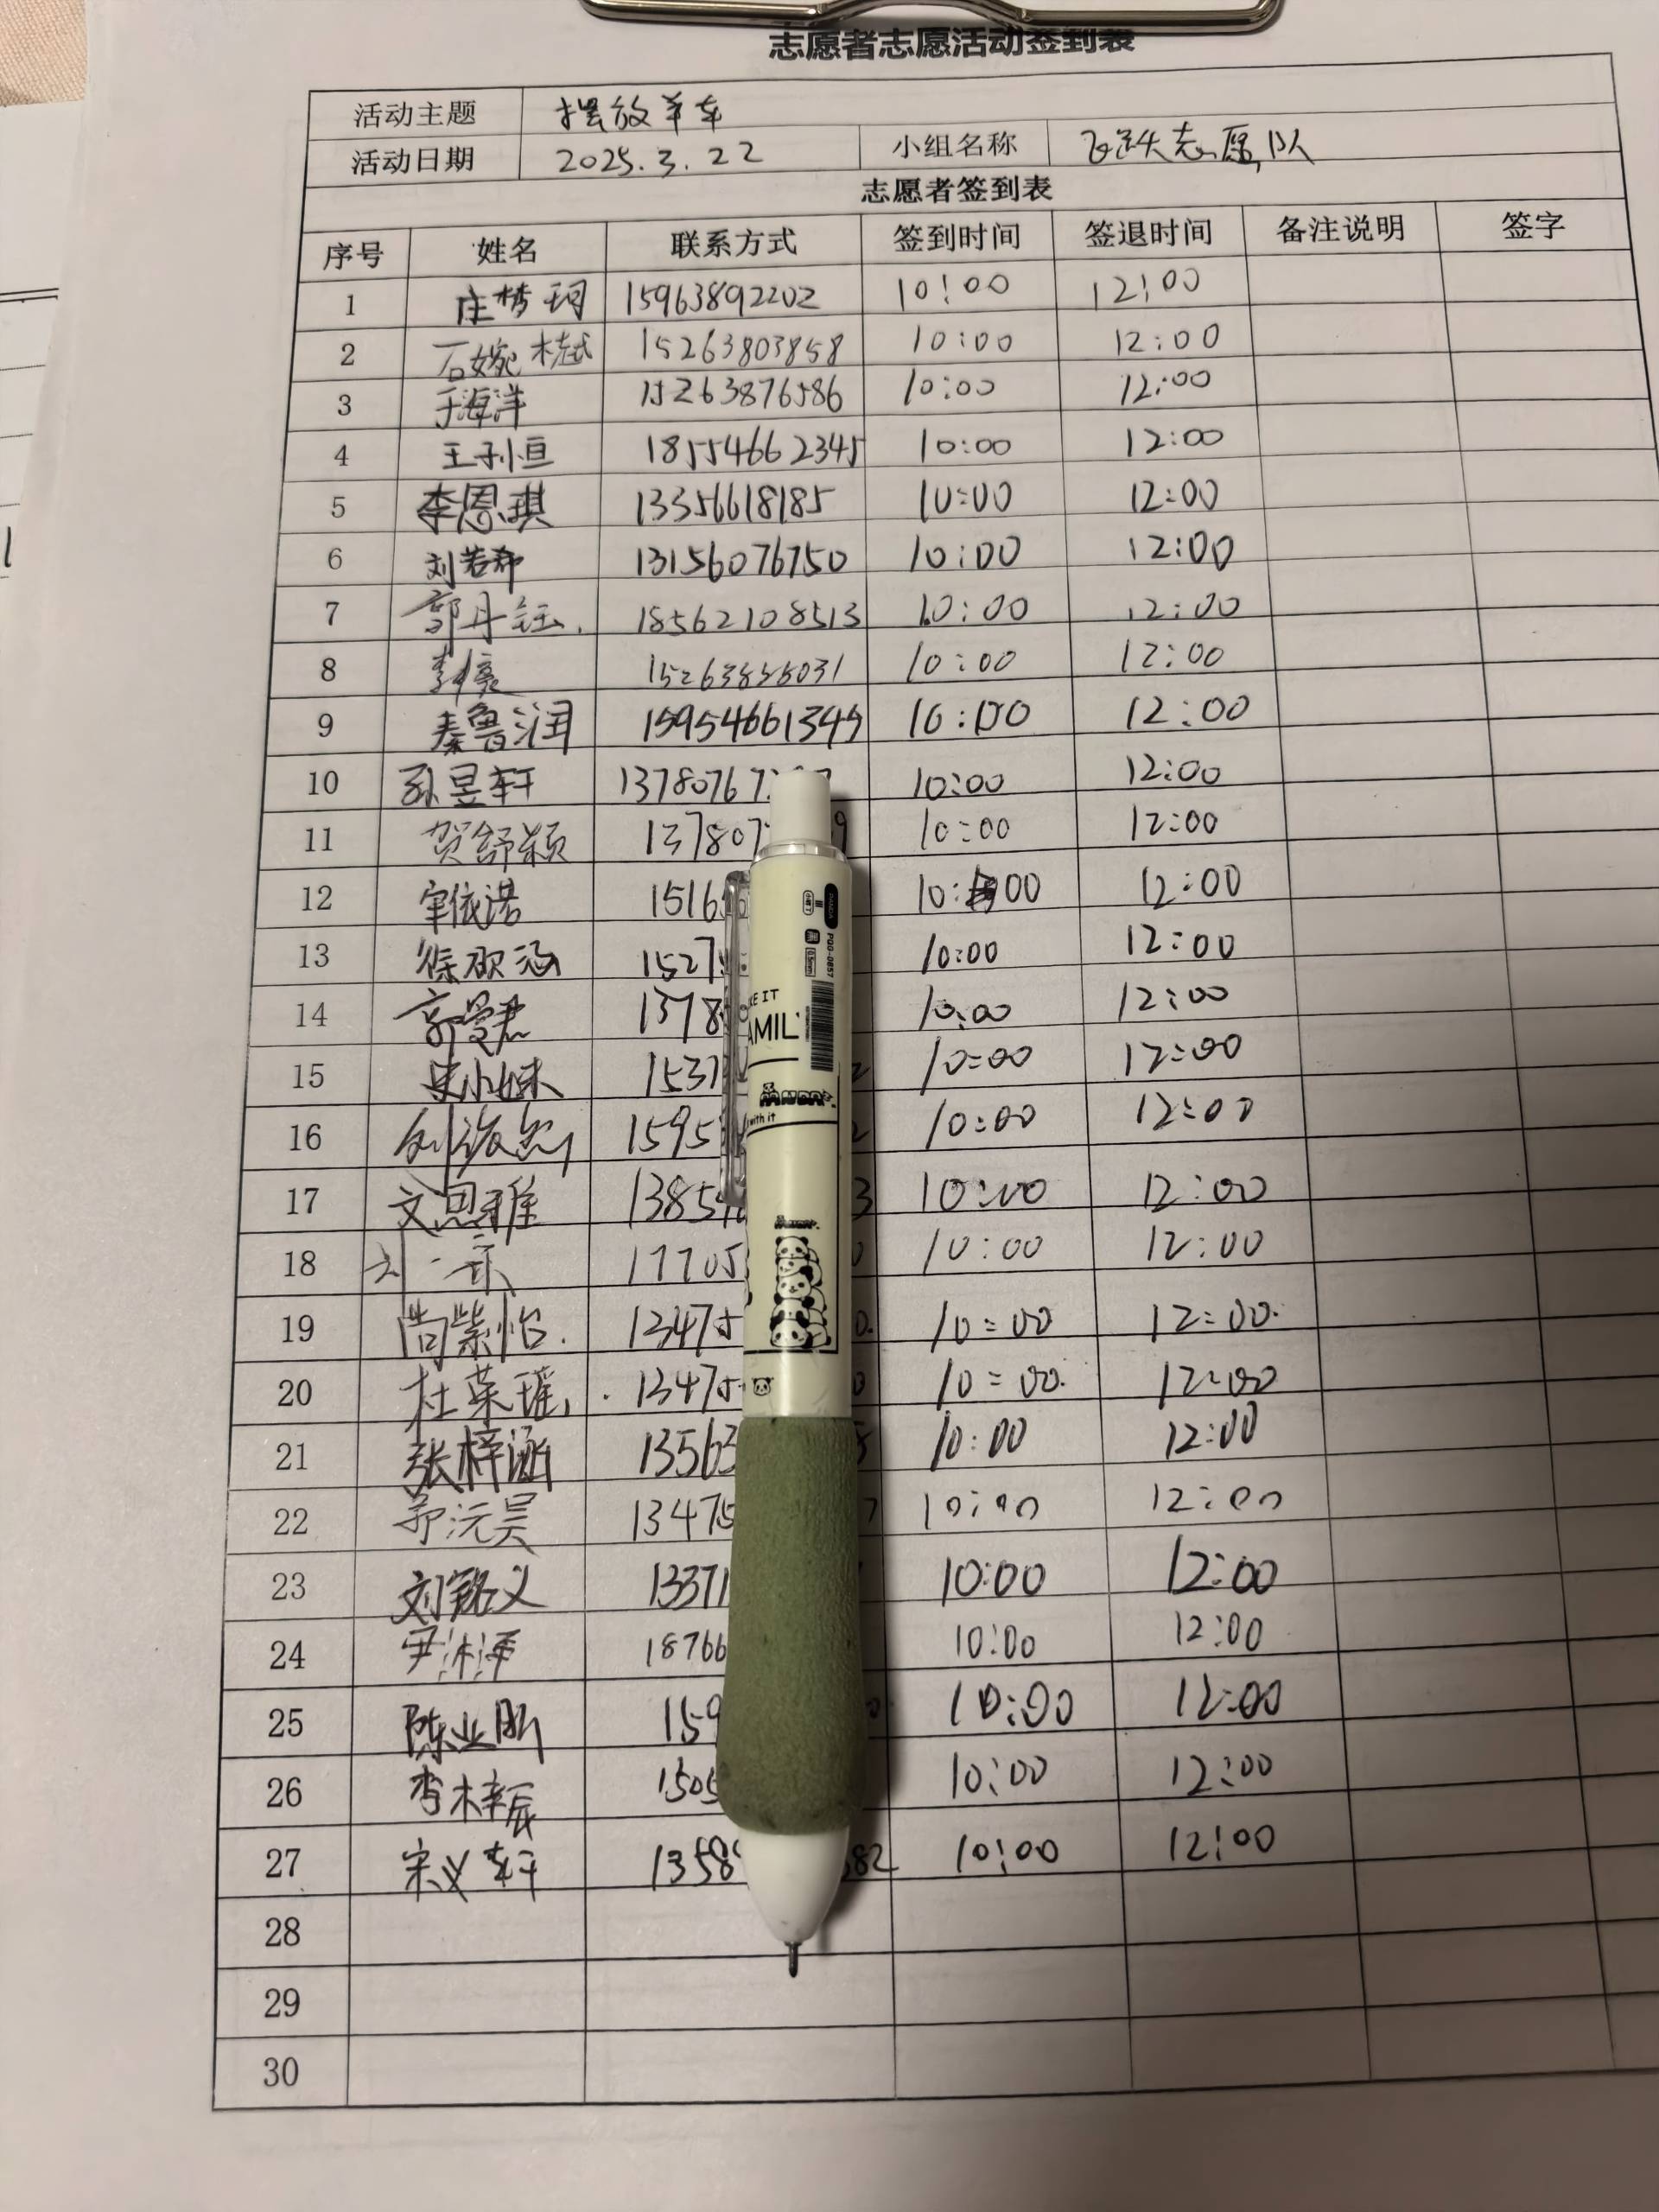 志愿者志愿活动签到表
活动主题 摆放单车
活动日期 2025.3.22 小组名称 志愿队
志愿者签到表
序号 姓名 联系方式 签到时间 签退时间 备注说明 签字
1 庄梦珂 15963892202 10:00 12:00
2 石婉 15263803858 10:00 12:00
3 于海洋 15263876586 10:00 12:00
4 王子恒 18554662345 10:00 12:00
5 李恩琪 13356618185 10:00 12:00
6 刘若希 13156076750 10:00 12:00
7 郭丹钰 18562108513 10:00 12:00
8 10:00 12:00
9 秦鲁润 15954661349 10:00 12:00
10 孙昱轩 1378076 10:00 12:00
11 贺舒颖 137807 9 10:00 12:00
12 依诺 1516 10:00 12:00
13 徐歆涵 1527 10:00 12:00
14 郭曼君 1378 10:00 12:00
15 小妹 1537 2 10:00 12:00
16 刘 1595 2 10:00 12:00
17 文思雅 1385 3 10:00 12:00
18 刘一 17705 0 10:00 12:00
19 尚紫怡. 13475 0. 10:00 12:00.
20 杜荣瑶 13475 0 10:00. 12:00
21 张梓涵 13563 5 10:00 12:00
22 沅昊 13475 7 10:00 12:00
23 刘铭义 1337 10:00 12:00
24 尹沐泽 18766 10:00 12:00
25 陈业 159 0 10:00 12:00
26 李梓辰 1505 10:00 12:00
27 宋义轩 1358 382 10:00 12:00
28
29
30
PANDA
PQG-0857
0.5mm
KE IT
AMIL
PANDA
with it